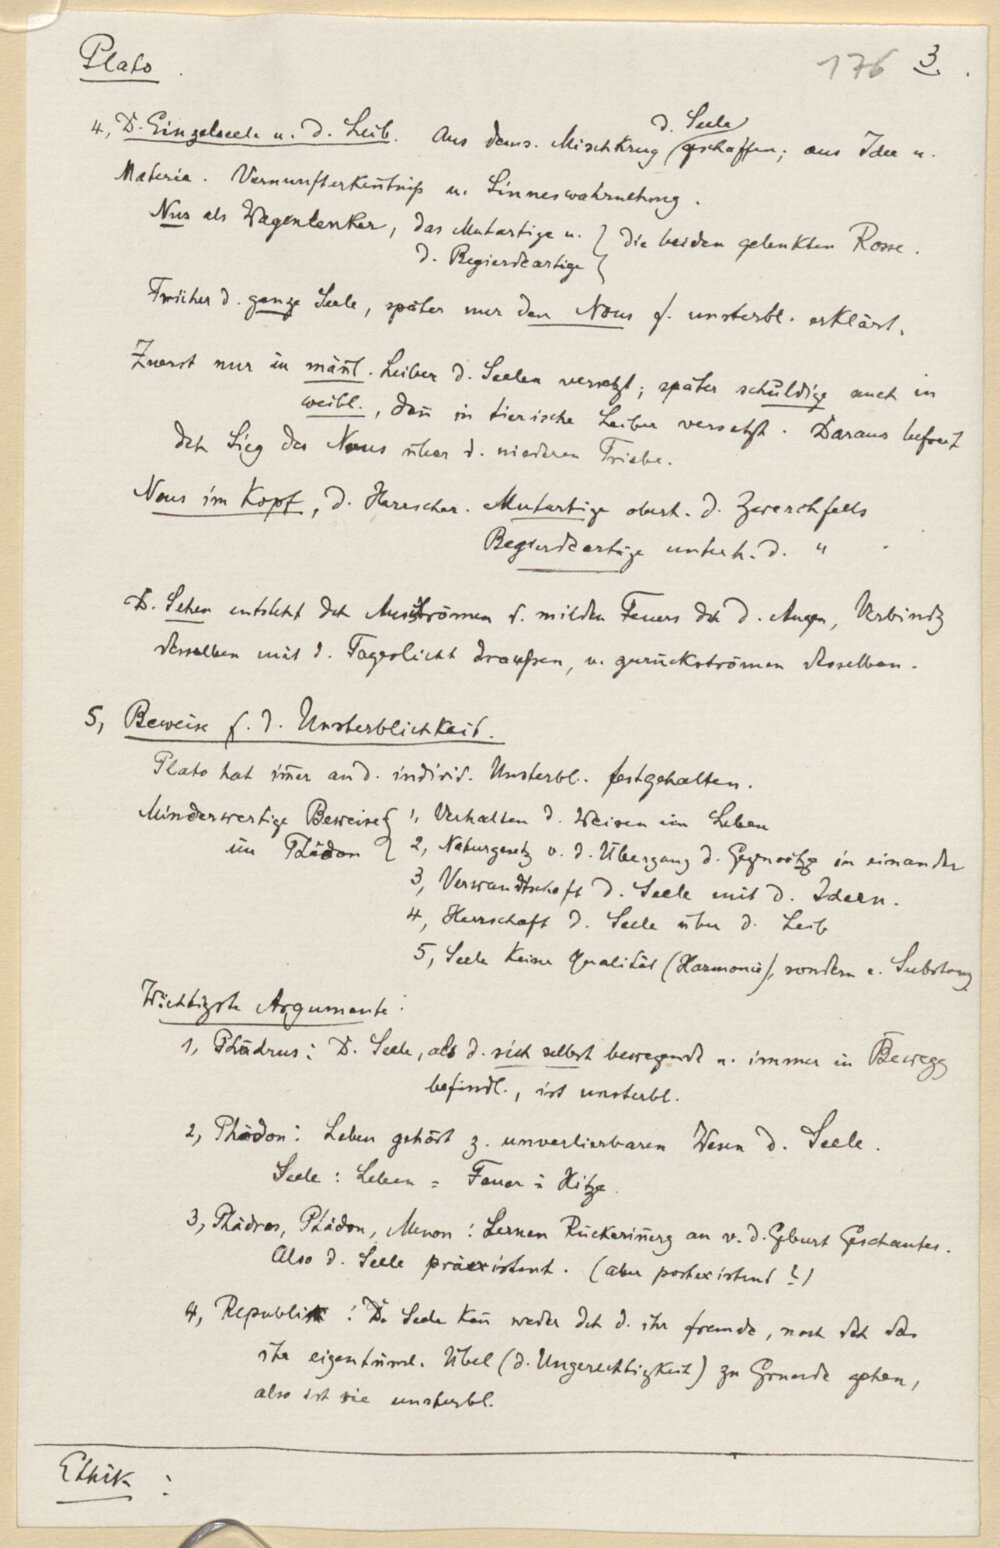 Plato. 176 3.
4, D. Einzelseele u. d. Leib. Aus dems. Mischkrug d. Seele geschaffen; aus Idee u.
Materie. Vernunfterkeñtniß u. Sinneswahrnehmung.
Nus als Wagenlenker, das Mutartige u. } die beiden gelenkten Rosse.
d. Begierdeartige
Früher d. ganze Seele, später nur den Nous f. unsterbl. erklärt.
Zuerst nur in mäñl. Leiber d. Seelen versetzt; später schuldige auch in
weibl., dañ in tierische Leiber versetzt. Daraus befreit
dch Sieg des Nous über d. niederen Triebe.
Nous im Kopf, d. Herrscher. Mutartige oberh. d. Zwerchfells
Begierdeartige unterh. d. "
D. Sehen entsteht dch Ausströmen d. milden Feuers dch d. Augen, Verbindg
desselben mit d. Tageslicht draußen, u. zurückströmen desselben.
5, Beweise f. d. Unsterblichkeit.
Plato hat im̃er an d. individ. Unsterbl. festgehalten.
Minderwertige Beweise { 1, Verhalten d. Weisen im Leben
im Phädon 2, Naturgesetz v. d. Übergang d. Gegensätze in einander
3, Verwandtschaft d. Seele mit d. Ideen.
4, Herrschaft d. Seele über d. Leib
5, Seele keine Qualität (Harmonie), sondern e. Substanz
Wichtigste Argumente:
1, Phädrus: D. Seele, als d. sich selbst bewegende u. immer in Bewegg
befindl., ist unsterbl.
2, Phädon: Leben gehört z. unverlierbaren Wesen d. Seele.
Seele : Leben = Feuer : Hitze.
3, Phädros, Phädon, Menon: Lernen Rückeriñerg an v. d. Geburt Geschautes.
Also d. Seele präexistent. (aber postexistent!)
4, Republik: D. Seele kañ weder dch d. ihr fremde, noch dch das
ihr eigentüml. Übel (d. Ungerechtigkeit) zu Grunde gehen,
also ist sie unsterbl.
Ethik: